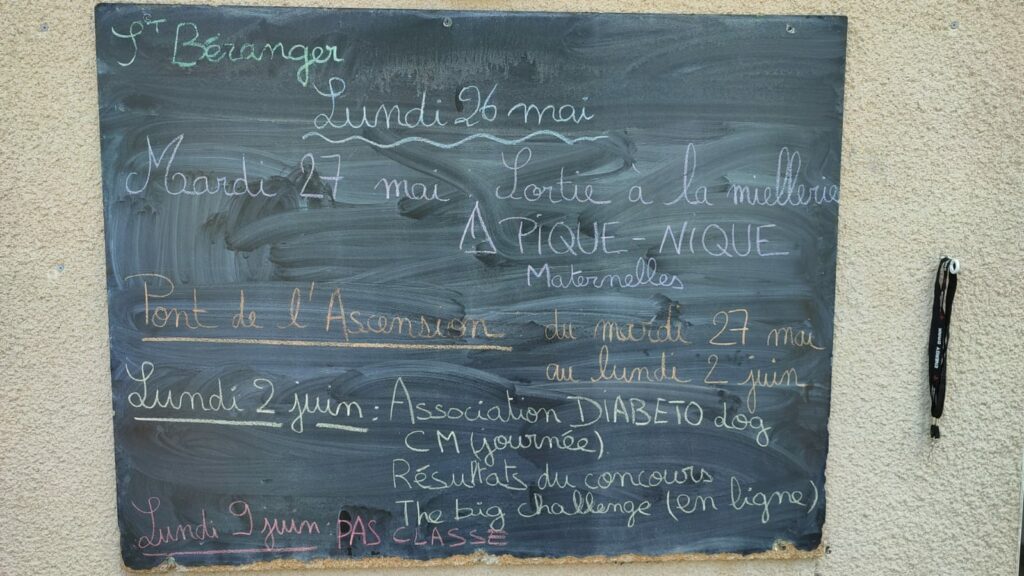 St Béranger
Lundi 26 mai
Mardi 27 mai Sortie à la miellerie
⚠ PIQUE-NIQUE
Maternelles
Pont de l'Ascension du mardi 27 mai
au lundi 2 juin
Lundi 2 juin : Association DIABETO dog
CM (journée)
Résultats du concours
The big challenge (en ligne)
Lundi 9 juin : PAS CLASSE